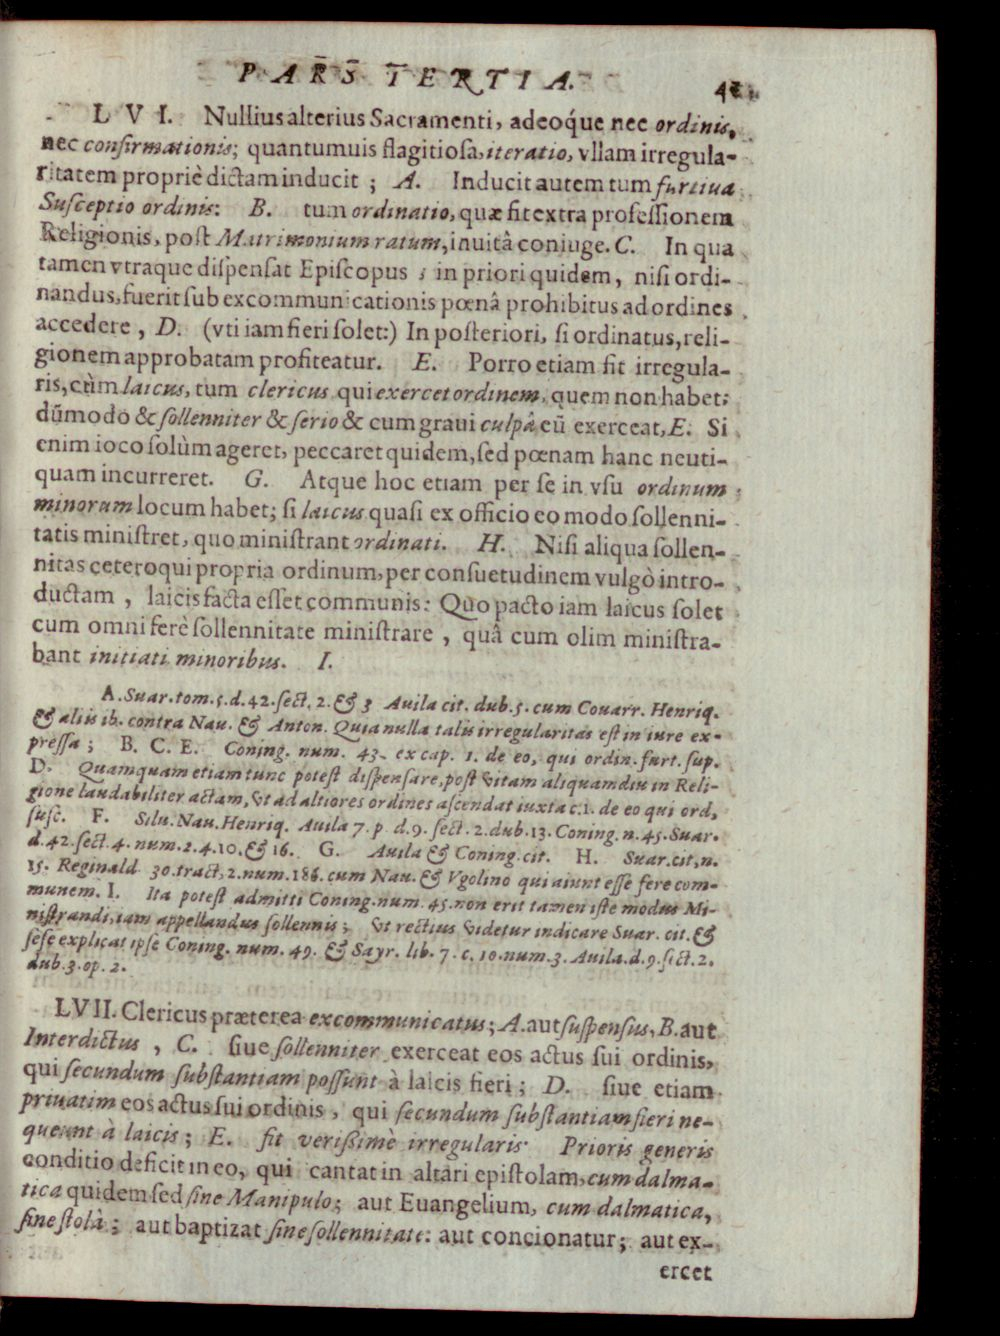 PARS TERTIA.
LVI. Nullius alterius Sacramenti, adeoq́ue nec ordinis,
nec confirmationis; quantumuis flagitiosa, iteratio, vllam irregula-
ritatem propriè dictam inducit; A. Inducit autem tum furtiua
Susceptio ordinis: B. tum ordinatio, quæ fit extra professionem
Religionis, post Matrimonium ratum, inuitâ coniuge. C. In qua
tamen vtraque dispensat Episcopus; in priori quidem, nisi ordi-
nandus, fuerit sub excommunicationis pœnâ prohibitus ad ordines
accedere, D. (vti iam fieri solet:) In posteriori, si ordinatus, reli-
gionem approbatam profiteatur. E. Porro etiam fit irregula-
ris, cùm laicus, tum clericus qui exercet ordinem, quem non habet;
dũmodo & sollenniter & serio & cum graui culpâ eũ exerceat, E. Si
enim ioco solùm ageret, peccaret quidem, sed pœnam hanc neuti-
quam incurreret. G. Atque hoc etiam per se in vsu ordinum
minorum locum habet; si laicus quasi ex officio eo modo sollenni-
tatis ministret, quo ministrant ordinati. H. Nisi aliqua sollen-
nitas ceteroqui propria ordinum, per consuetudinem vulgò intro-
ductam, laicis facta esset communis: Quo pacto iam laicus solet
cum omni ferè sollennitate ministrare, quâ cum olim ministra-
bant initiati minoribus. I.
A. Suar. tom. 5. d. 42. sect. 2. & 3 Auila cit. dub. 5. cum Couarr. Henriq.
& aliis ib. contra Nau. & Anton. Quia nulla talis irregularitas est in iure ex-
pressa; B. C. E. Coning. num. 43. ex cap. 1. de eo, qui ordin. furt. sup.
D. Quamquam etiam tunc potest dispensare, post vitam aliquamdiu in Reli-
gione laudabiliter actam, vt ad altiores ordines ascendat iuxta c. 1. de eo qui ord,
susc. F. Silu. Nau. Henriq. Auila 7. p d. 9. sect. 2. dub. 13. Coning. n. 45. Suar.
d. 42. sect. 4. num. 2. 4. 10. & 16. G. Auila & Coning. cit. H. Suar. cit, n.
15. Reginald 30. tract, 2. num. 186. cum Nau. & Vgolino qui aiunt esse fere com-
munem. I. Ita potest admitti Coning. num. 45. non erit tamen iste modus Mi-
nistrandi, iam appellandus sollennis; vt rectius videtur indicare Suar. cit. &
sese explicat ipse Coning. num. 49. & Sayr. lib. 7. c. 10. num. 3. Auila. d. 9. sect. 2.
dub. 3. op. 2.
LVII. Clericus præterea excommunicatus; A. aut suspensus, B. aut
Interdictus, C. siue sollenniter exerceat eos actus sui ordinis,
qui secundum substantiam possunt à laicis fieri; D. siue etiam
priuatim eos actus sui ordinis, qui secundum substantiam fieri ne-
queunt à laicis; E. fit verissimè irregularis Prioris generis
conditio deficit in eo, qui cantat in altari epistolam, cum dalma-
tica quidem sed sine Manipulo; aut Euangelium, cum dalmatica,
sine stolà; aut baptizat sine sollennitate: aut concionatur; aut ex-
ercet